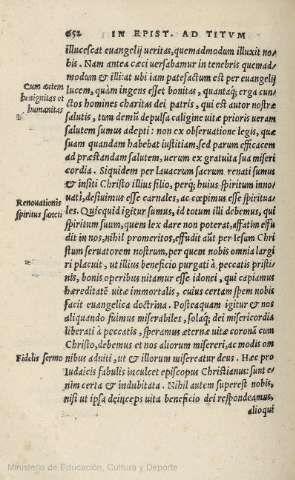 652 IN EPIST. AD TITVM
illucescat euangelij ueritas, quemadmodum illuxit no⸗
bis. Nam antea cæci uersabamur in tenebris quemad⸗
modum & illi: at ubi iam patefactum est per euangelij
Cum autem
benignitas et
humanitas
lucem, quàm ingens esset bonitas, quantáq; erga cun⸗
ctos homines charitas dei patris, qui est autor nostræ
salutis, tum demũ depulsa caligine uitæ prioris ueram
salutem sumus adepti: non ex obseruatione legis, quæ
suam quandam habebat iustitiam, sed parum efficacem
ad præstandam salutem, uerum ex gratuita sua miseri
cordia. Siquidem per lauacrum sacrum renati sumus
& insiti Christo illius filio, perq; huius spiritum inno⸗
Renouationis
spiritus sancti
uati, desiuimus esse carnales, ac cœpimus esse spiritua⸗
les. Quicquid igitur sumus, id totum illi debemus, qui
spiritum suum, quem lex dare non poterat, affatim effu
dit in nos, nihil promeritos, effudit aũt per Iesum Chri
stum seruatorem nostrum, per quem nobis omnia largi
ri placuit, ut illius beneficio purgati à peccatis pristi⸗
nis, bonis operibus nitamur esse idonei, qui capiamus
hæreditatẽ uitæ immortalis, cuius certam spem nobis
facit euangelica doctrina. Posteaquam igitur & nos
aliquando fuimus miserabiles, solaq; dei misericordia
liberati à peccatis, speramus æternæ uitæ coronã cum
Christo, debemus et nos aliorum misereri, ac modis om
Fidelis sermo
nibus adniti, ut & illorum misereatur deus. Hæc pro
Iudaicis fabulis inculcet episcopus Christianus: sunt e⸗
nim certa & indubitata. Nihil autem superest nobis,
nisi ut ipsa deinceps uita beneficio dei respondeamus,
alioqui
Ministerio de Educación, Cultura y Deporte